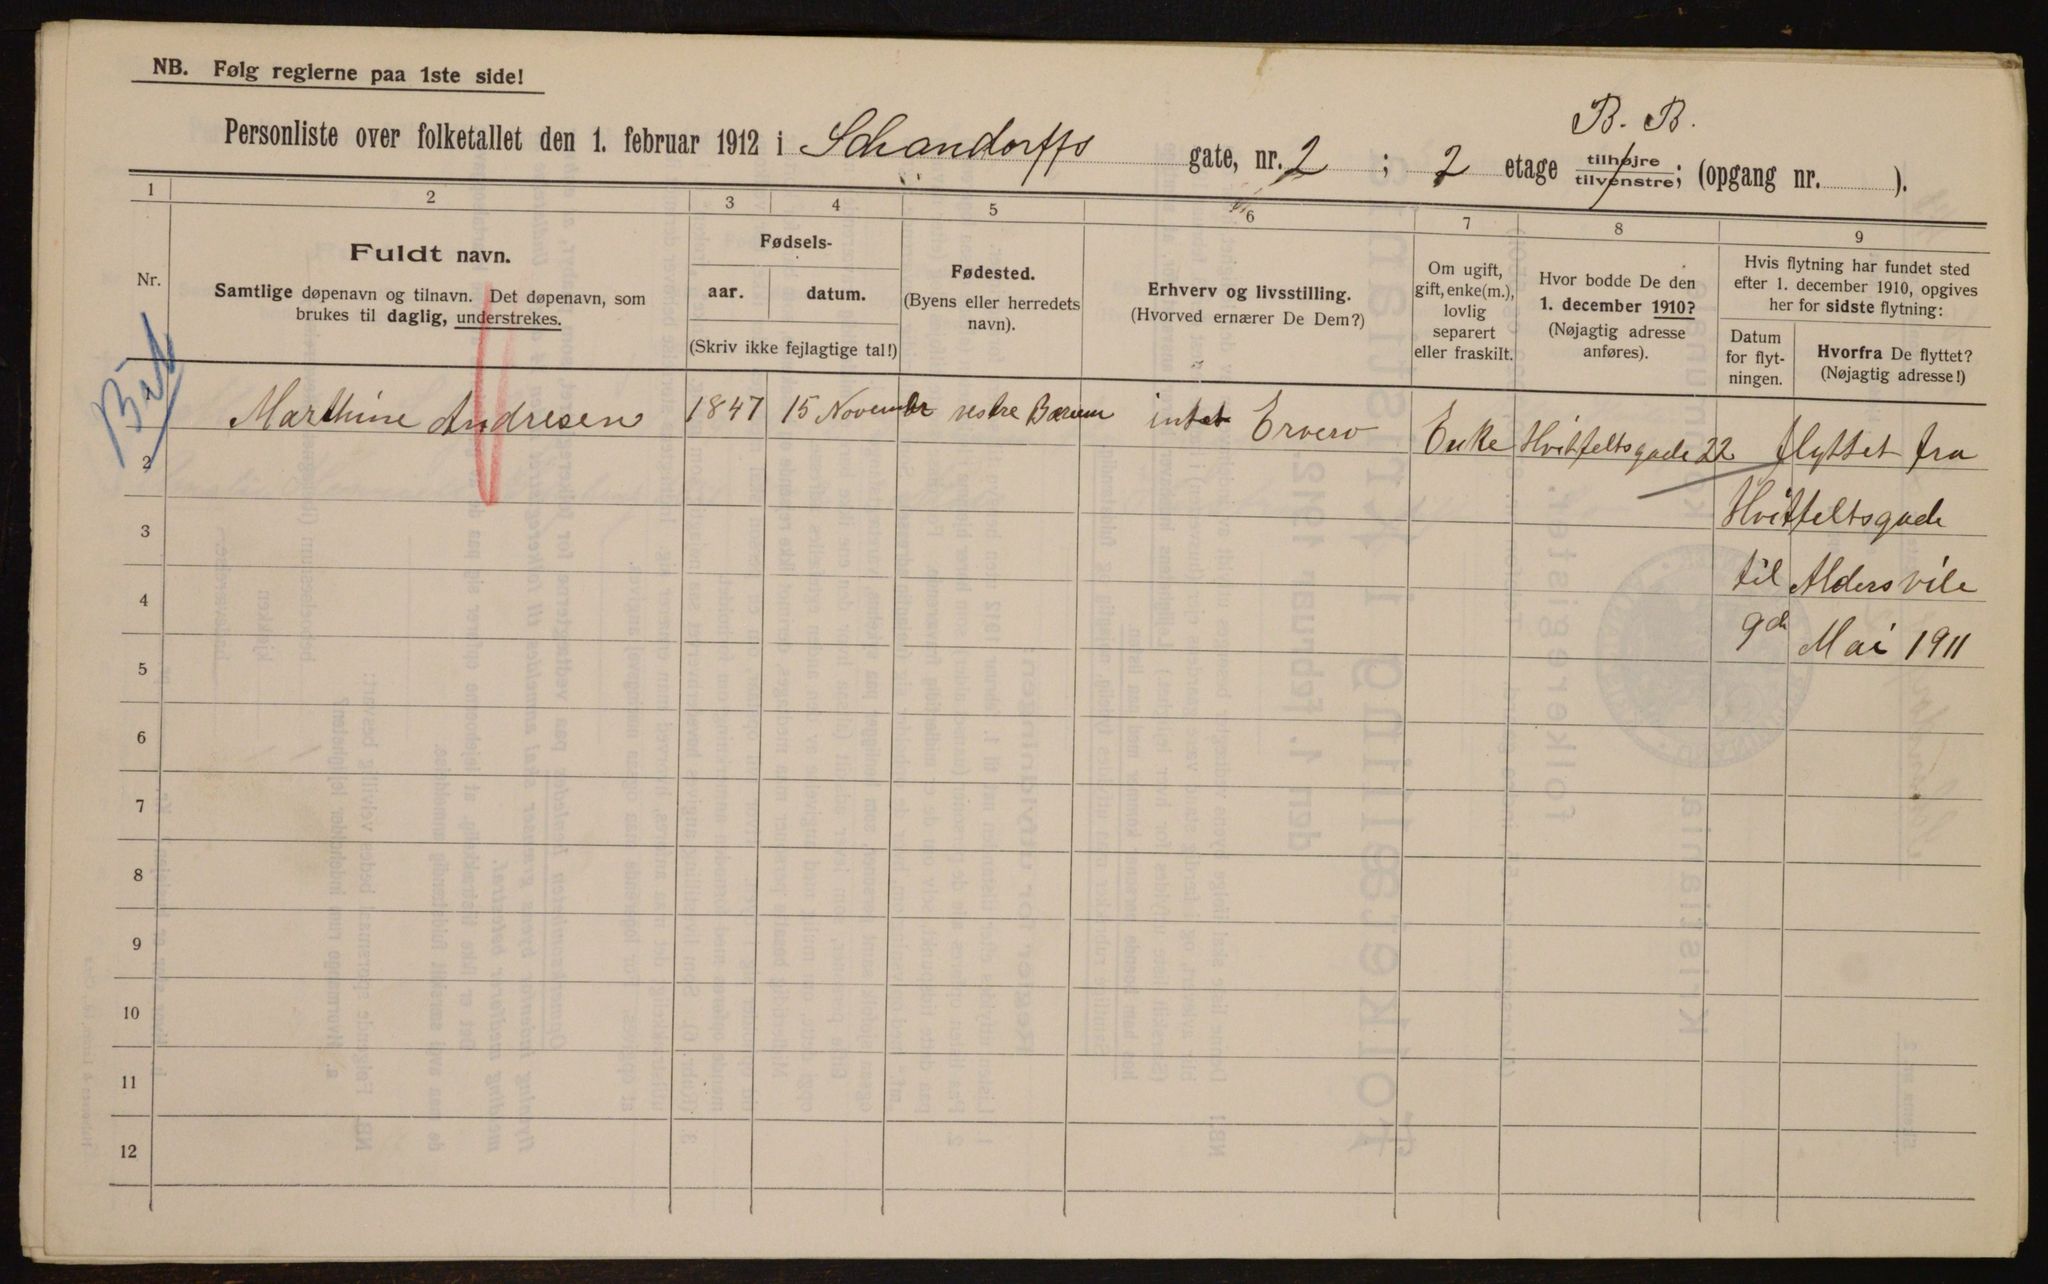 NB. Følg reglerne paa 1ste side!
B. B.
Personliste over folketallet den 1. februar 1912 i Schandorffs gate, nr. 2 ; 2 etage tilhøjre/tilvenstre; (opgang nr. ).
1 2 3 4 5 6 7 8 9
Nr.
Fuldt navn.
Samtlige døpenavn og tilnavn. Det døpenavn, som
brukes til daglig, understrekes.
Fødsels-
aar. datum.
(Skriv ikke fejlagtige tal!)
Fødested.
(Byens eller herredets
navn).
Erhverv og livsstilling.
(Hvorved ernærer De Dem?)
Om ugift,
gift, enke(m.),
lovlig
separert
eller fraskilt.
Hvor bodde De den
1. december 1910?
(Nøjagtig adresse
anføres).
Hvis flytning har fundet sted
efter 1. december 1910, opgives
her for sidste flytning:
Datum
for flyt-
ningen.
Hvorfra De flyttet?
(Nøjagtig adresse!)
Marthine Andresen 1847 15 November vestre Bærum intet Erverv Enke Hvitfeltsgade 22 flyttet fra
2
3 Hvitfeltsgade
4 til Aldersvile
5 9de Mai 1911
6
7
8
9
10
11
12